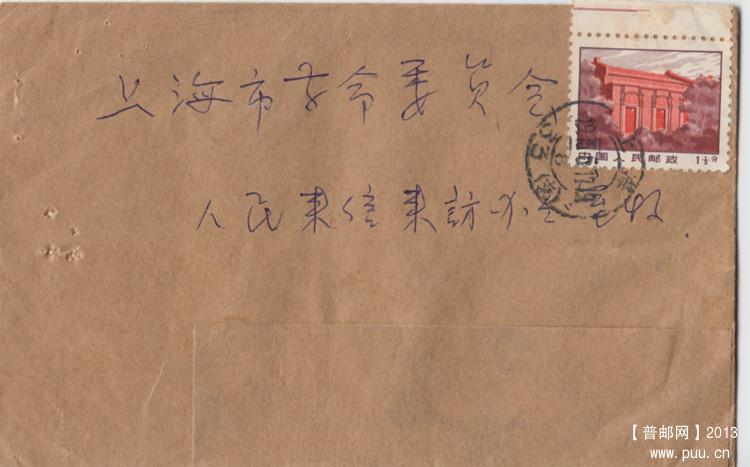 上海市革命委员会
中国人民邮政 1½分
33
人民来信来訪办公室收.
【普邮网】2013
www.puu.cn